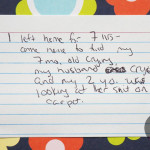 I left home for 7 hrs-
come home to find my
7 mo. old crying,
my husband crying
and my 2 y.o. was
looking at her shit on
carpet.